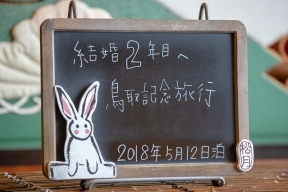 結婚2年目へ
鳥取記念旅行
2018年5月12日泊
松月